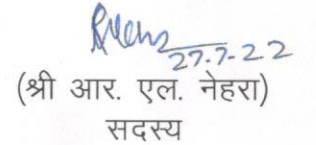 27.7-22
(श्री आर. एल. नेहरा)
सदस्य